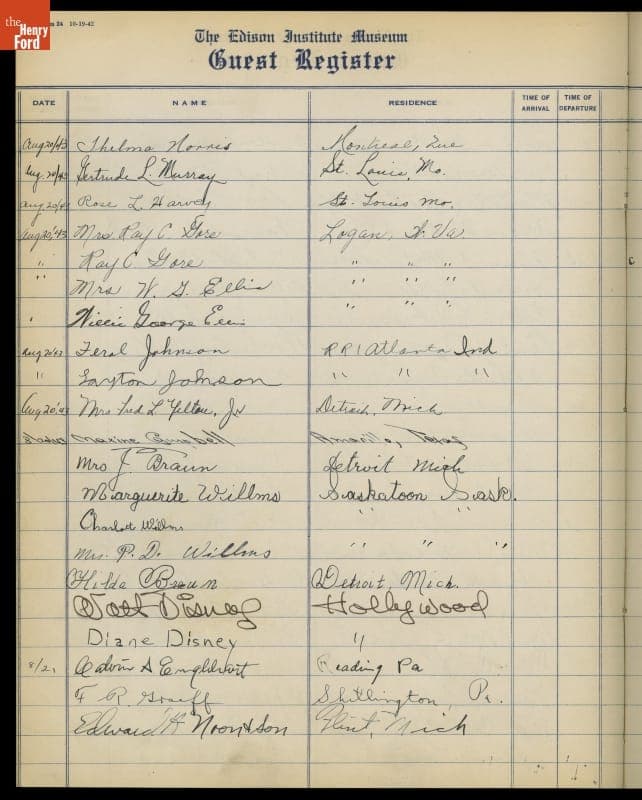 the Henry Ford
24 10-19-42
The Edison Institute Museum
Guest Register
DATE NAME RESIDENCE TIME OF ARRIVAL TIME OF DEPARTURE
Aug 20/43 Thelma Norris Montreal, Que
Aug. 20/43 Gertrude L. Murray St. Louis, Mo.
Aug 20/43 Rose L. Harvey St. Louis Mo.
Aug 20, '43 Mrs Ray C. Gore Logan, W. Va.
" Ray C Gore " " "
" Mrs W. G. Ellis " " "
" Willie George Ellis " " "
Aug 20 43 Feral Johnson RR1 Atlanta Ind
" Layton Johnson " " "
Aug 20, '43 Mrs Fred L Yelton, Jr Detroit, Mich
Maxine Campbell Amarillo, Texas
Mrs J. Braun Detroit Mich
Marguerite Willms Saskatoon Sask.
Charlotte Willms " "
Mrs. P. D. Willms " " "
Hilda Braun Detroit, Mich.
Walt Disney Hollywood
Diane Disney "
8/21 Calvin A Englehart Reading Pa
F R Graeff Shillington, Pa.
Edward H Flint, Mich